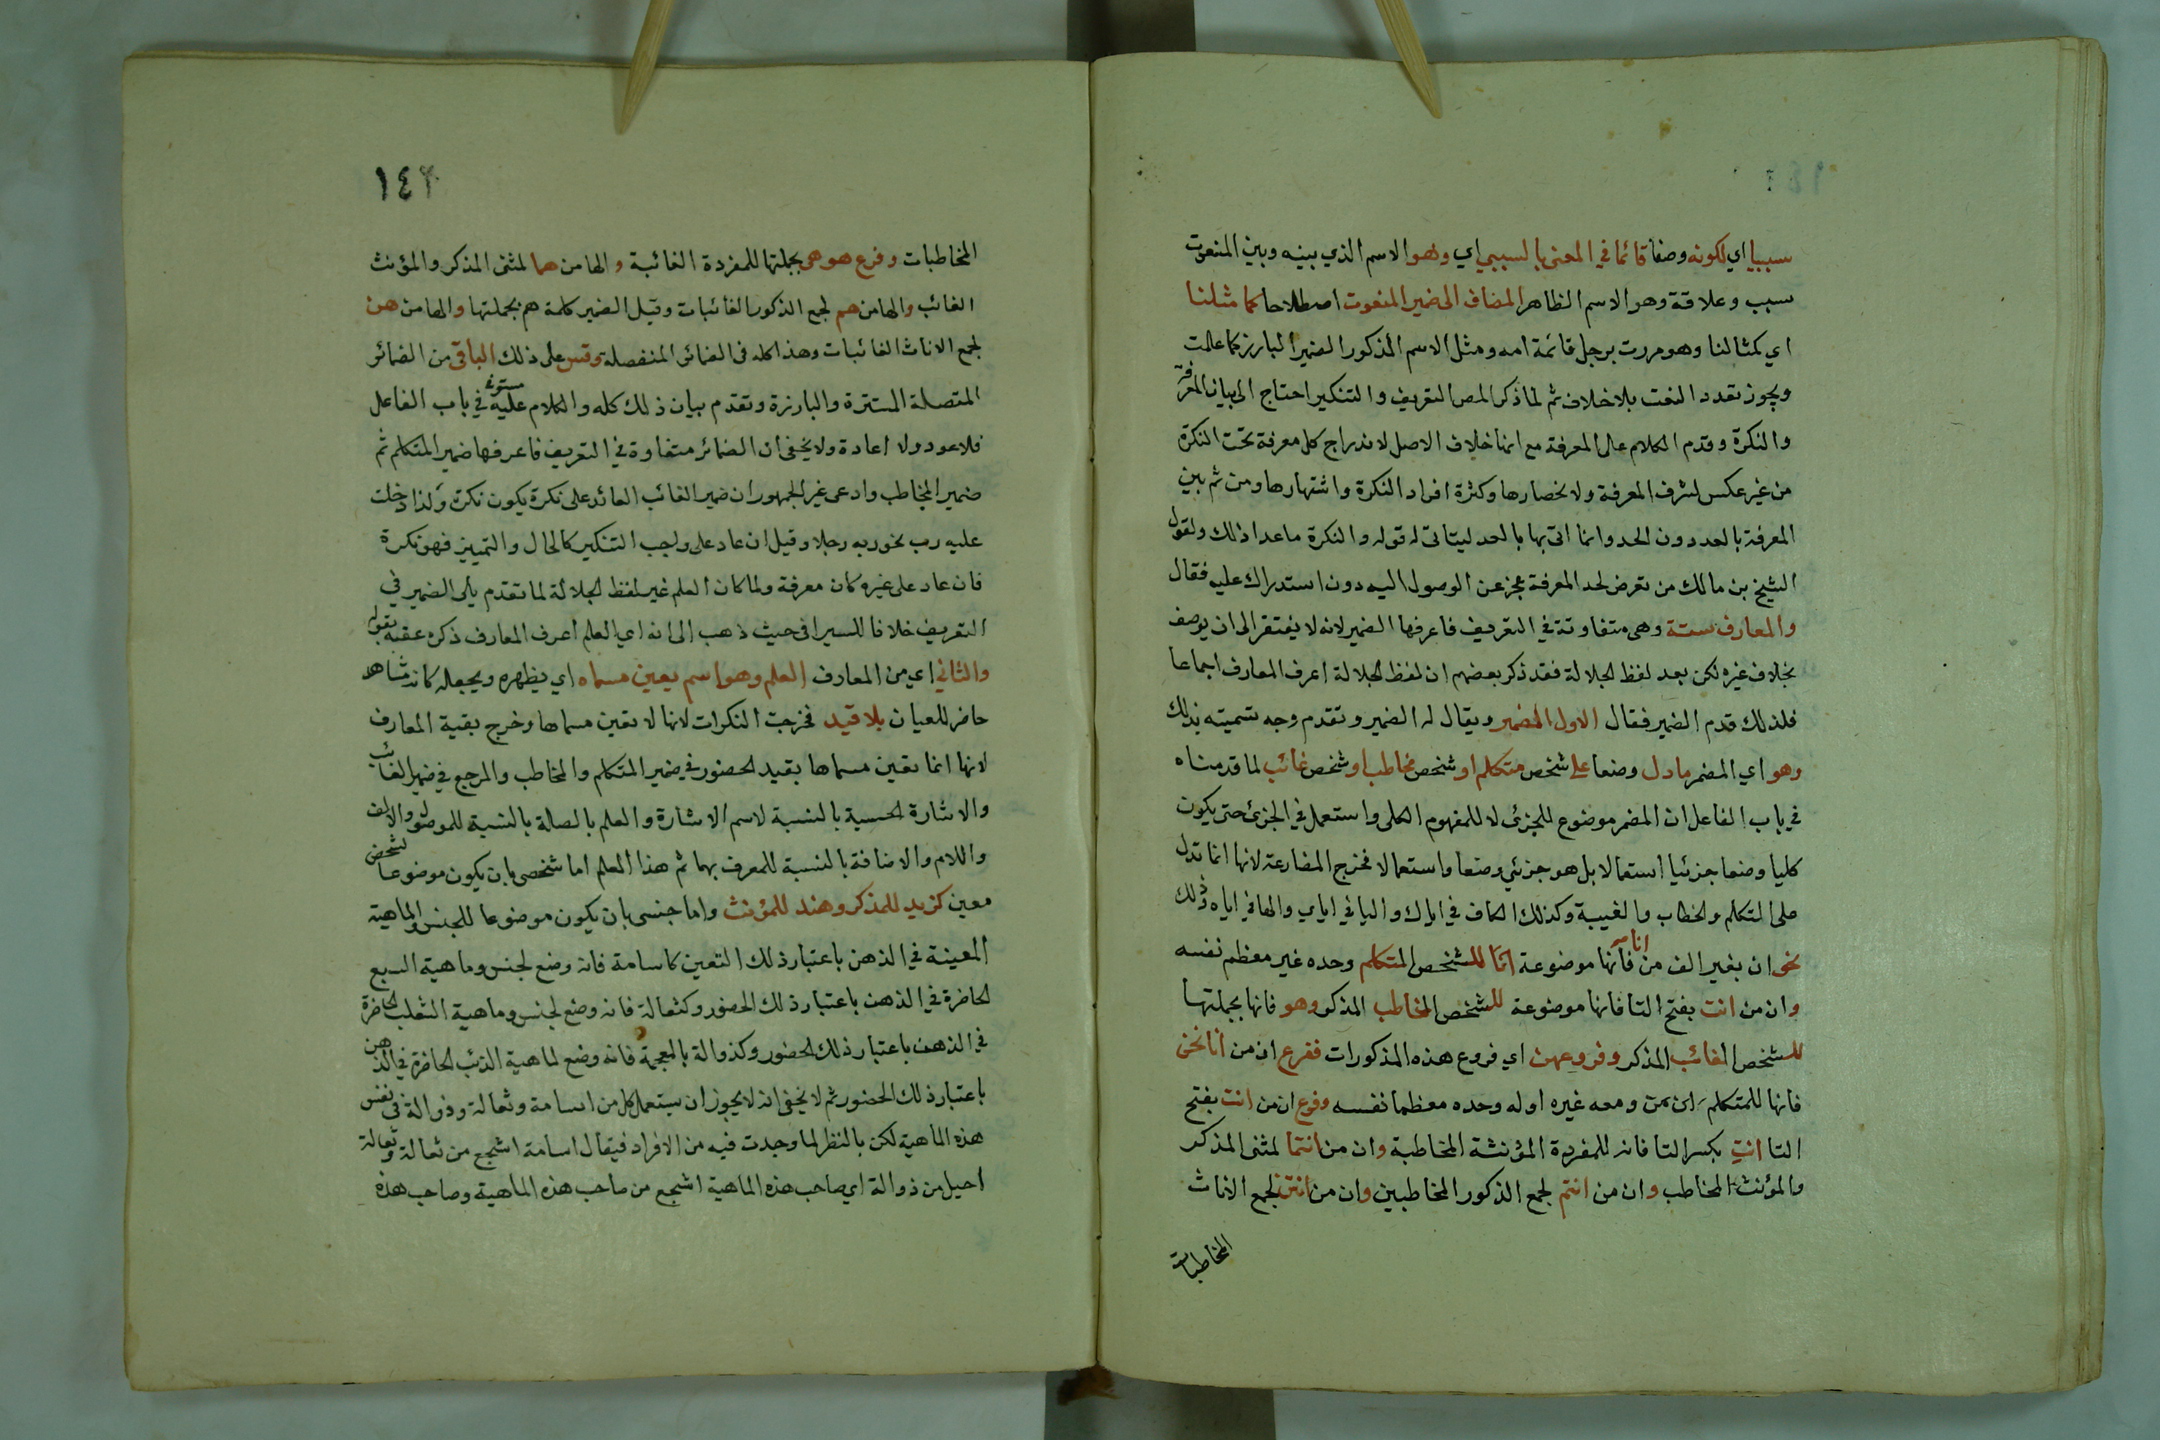 سببيا اي لكونه وصفا قائما في المعنى بالسببي اي وهو الاسم الذي بينه وبين المنعوت
سبب وعلاقة وهو الاسم الظاهر المضاف الى ضمير المنعوت اصطلاحا كما مثلنا
اي كمثالنا وهو مررت برجل قائمة امه ومثل الاسم المذكور الضمير البارز كما علمت
ويجوز تعدد النعت بلا خلاف ثم لما ذكر المص التعريف والتنكير احتاج الى بيان المعرفة
والنكرة وقدم الكلام على المعرفة مع انها خلاف الاصل لاندراج كل معرفة تحت النكرة
من غير عكس لشرف المعرفة ولانحصارها وكثرة افراد النكرة واشتهارها ومن ثم بين
المعرفة بالعدد دون الحد وانما اتى بها بالعد ليتاتى له قوله والنكرة ماعدا ذلك ولقول
الشيخ بن مالك من تعرض لحد المعرفة عجز عن الوصول اليه دون استدراك عليه فقال
والمعارف ستة وهي متفاوتة في التعريف فاعرفها الضمير لانه لا يفتقر الى ان يوصف
بخلاف غيره لكن بعد لفظ الجلالة فقد ذكر بعضهم ان لفظ الجلالة اعرف المعارف اجماعا
فلذلك قدم الضمير فقال الاول المضمر ويقال له الضمير وتقدم وجه تسميته بذلك
وهو اي المضمر مادل وضعا على شخص متكلم او شخص مخاطب او شخص غائب لما قدمناه
في باب الفاعل ان المضمر موضوع للجزئي لا للمفهوم الكلي واستعمل في الجزئي حتى يكون
كليا وضعا جزئيا استعمالا بل هو جزئي وضعا واستعمالا فخرج المضارعة لانها انما تدل
على التكلم والخطاب والغيبة وكذلك الكاف في اياك واليا في اياي والها في اياه وذلك
نحو ان بغير الف من انا فانها موضوعة اتا للشخص المتكلم وحده غير معظم نفسه
وان من انت بفتح التا فانها موضوعة للشخص المخاطب المذكر وهو فانها بجملتها
للشخص الغائب المذكر وفروعهن اي فروع هذه المذكورات ففرع ان من انا نحن
فانها للمتكلم ومعه غيره او له وحده معظما نفسه وفرع ان من انت بفتح
التا انت بكسر التا فانه للمفردة المؤنثة المخاطبة وان من انتما لمثنى المذكر
والمؤنث المخاطب وان من انتم لجمع الذكور المخاطبين وان من انتن لجمع الاناث
المخاطبات
١٤٢
المخاطبات وفرع هو هي بجملتها للمفردة الغائبة والها من هما لمثنى المذكر والمؤنث
الغائب والها من هم لجمع الذكور الغائبات وقيل الضمير كلمة هم بجملتها والها من هن
لجمع الاناث الغائبات وهذا كله في الضمائر المنفصلة وقس على ذلك الباقي من الضمائر
المتصلة المستترة والبارزة وتقدم بيان ذلك كله والكلام عليه مستوفى في باب الفاعل
فلا عود ولا اعادة ولا يخفى ان الضمائر متفاوتة في التعريف فاعرفها ضمير المتكلم ثم
ضمير المخاطب وادعى غير الجمهور ان ضمير الغائب العائد على نكرة يكون نكرة ولذا دخلت
عليه رب نحو ربه رجلا وقيل ان عاد على واجب التنكير كالحال والتمييز فهو نكرة
فان عاد على غيره كان معرفة ولما كان العلم غير لفظ الجلالة لما تقدم يلي الضمير في
التعريف خلافا للسيرافي حيث ذهب الى انه اي العلم اعرف المعارف ذكره عقبه بقوله
والثاني اي من المعارف العلم وهو اسم يعين مسماه اي يظهره ويجعله كانه مشاهد
حاضر للعيان بلا قيد فخرجت النكرات لانها لا تعين مسماها وخرج بقية المعارف
لانها انما تعين مسماها بقيد الحضور في ضمير المتكلم والمخاطب والمرجع في ضمير الغائب
والاشارة الحسية بالنسبة لاسم الاشارة والعلم بالصلة بالنسبة للموصول والالف
واللام والاضافة بالنسبة للمعرف بهما ثم هذا العلم اما شخصي بان يكون موضوعا لشخص
معين كزيد للمذكر وهند للمؤنث واما جنسي بان يكون موضوعا للجنس والماهية
المعينة في الذهن باعتبار ذلك التعين كاسامة فانه وضع لجنس وماهية السبع
الحاضرة في الذهن باعتبار ذلك الحضور وكثعالة فانه وضع لجنس وماهية الثعلب الحاضرة
في الذهن باعتبار ذلك الحضور وكذوالة بالمعجمة فانه وضع لماهية الذئب الحاضرة في الذهن
باعتبار ذلك الحضور ثم لا يخفى انه لا يجوز ان يستعمل كل من اسامة وثعالة وذوالة في نفس
هذه الماهية لكن بالنظر لما وجدت فيه من الافراد فيقال اسامة اشجع من ثعالة وثعالة
احيل من ذوالة اي صاحب هذه الماهية اشجع من صاحب هذه الماهية وصاحب هذه